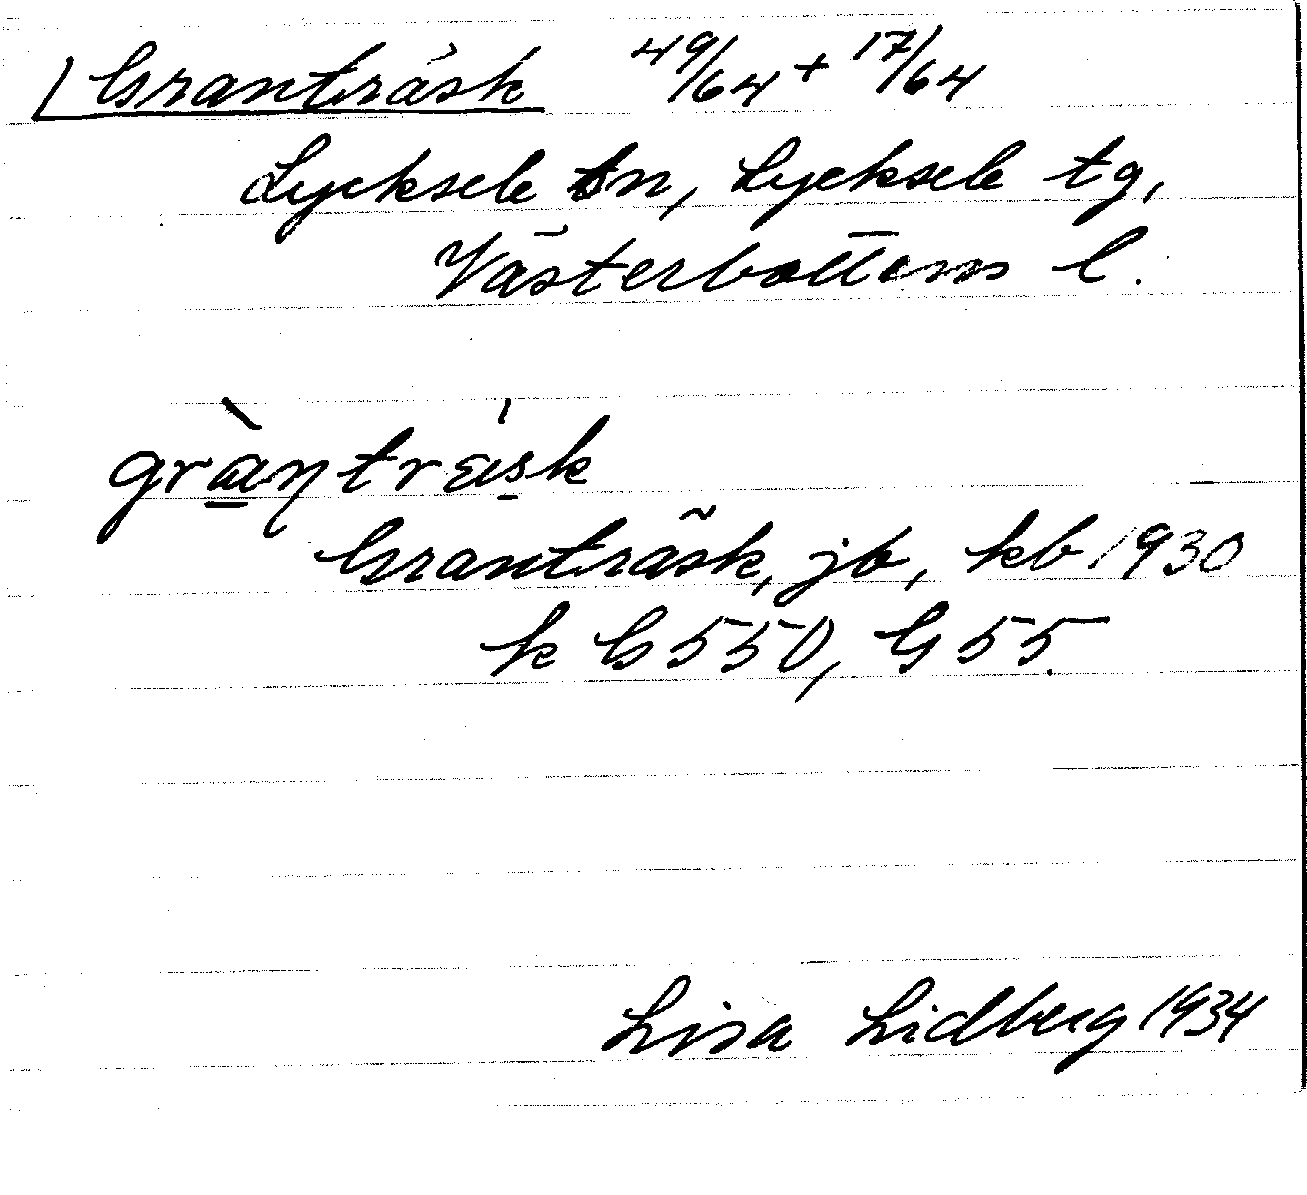 Granträsk 49/64 + 17/64
Lycksele sn, Lycksele tg,
Västerbottens l.
grànträsk
Granträsk, jb, kb 1930
k G 550, G 55.
Lisa Lidberg 1934